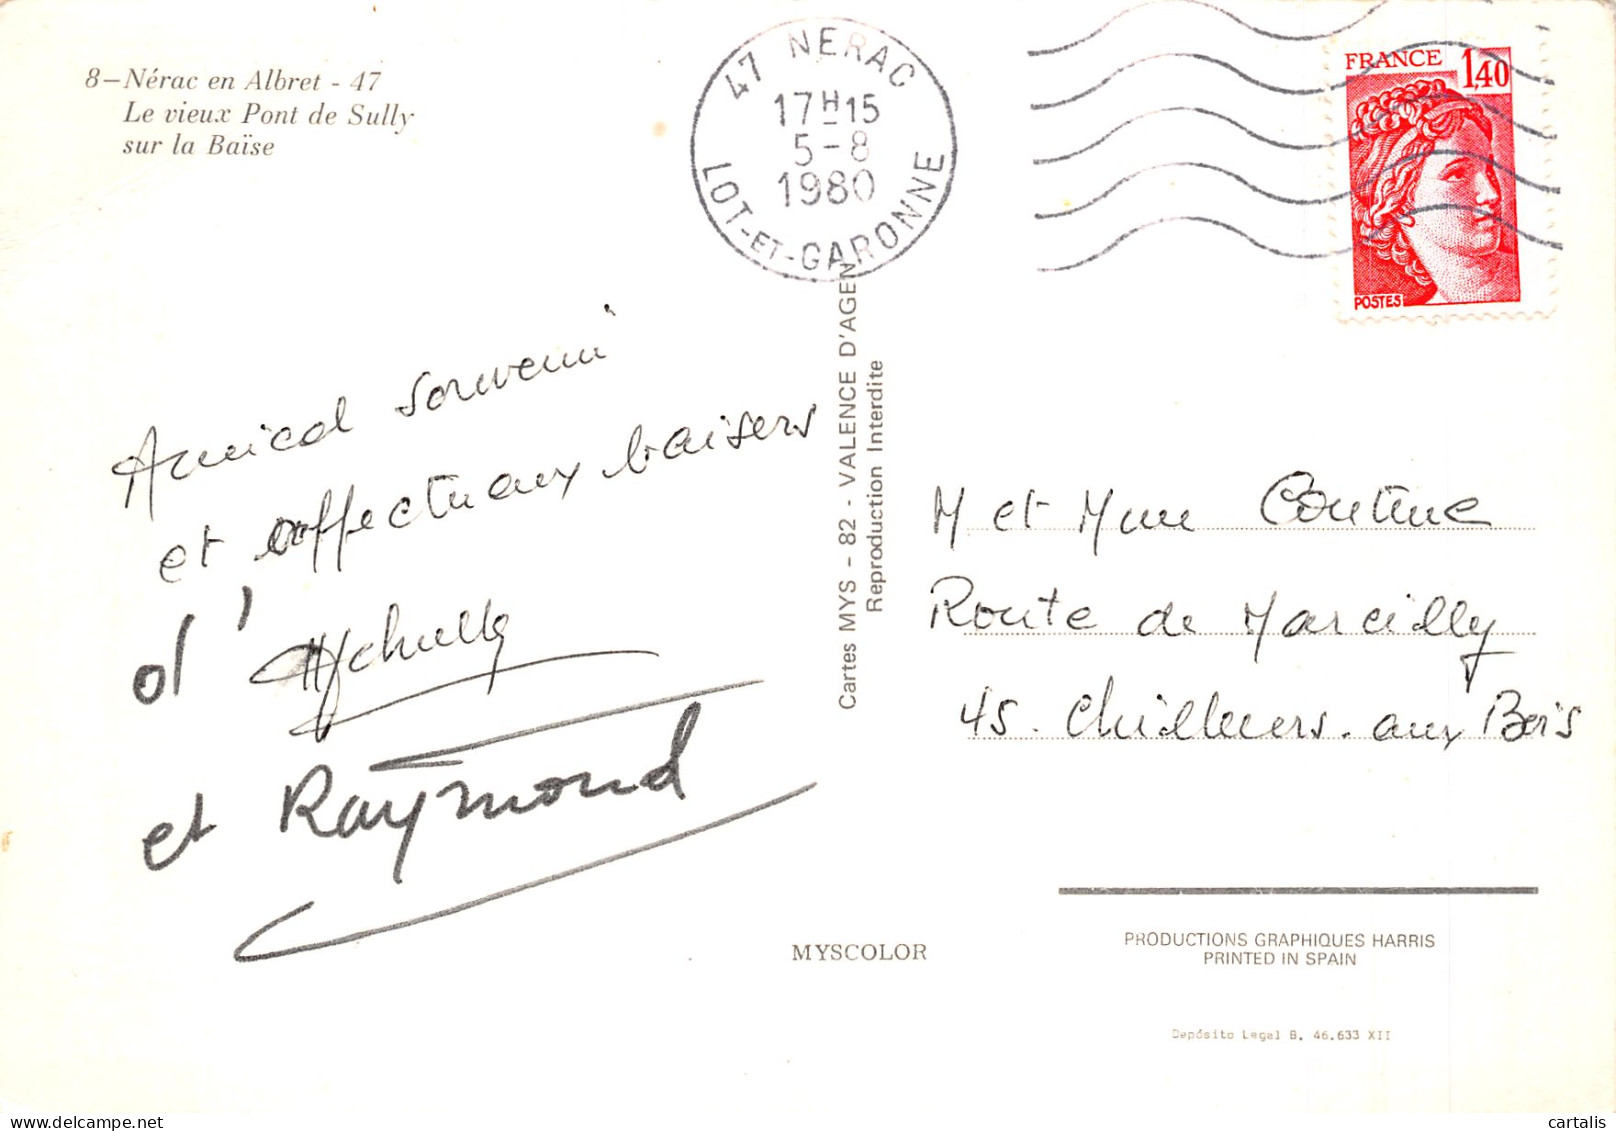 8–Nérac en Albret - 47
Le vieux Pont de Sully
sur la Baïse
47 NERAC
17H15
5-8
1980
LOT-ET-GARONNE
FRANCE 1,40
POSTES
Amical souvenir
et affectueux baisers
d'
et Raymond
Cartes MYS – 82 - VALENCE D'AGEN
Reproduction Interdite
M et Mme
Route de Marcilly
45. Chilleurs. aux Bois
MYSCOLOR
PRODUCTIONS GRAPHIQUES HARRIS
PRINTED IN SPAIN
Depósito Legal B. 46.633 XII
cartalis